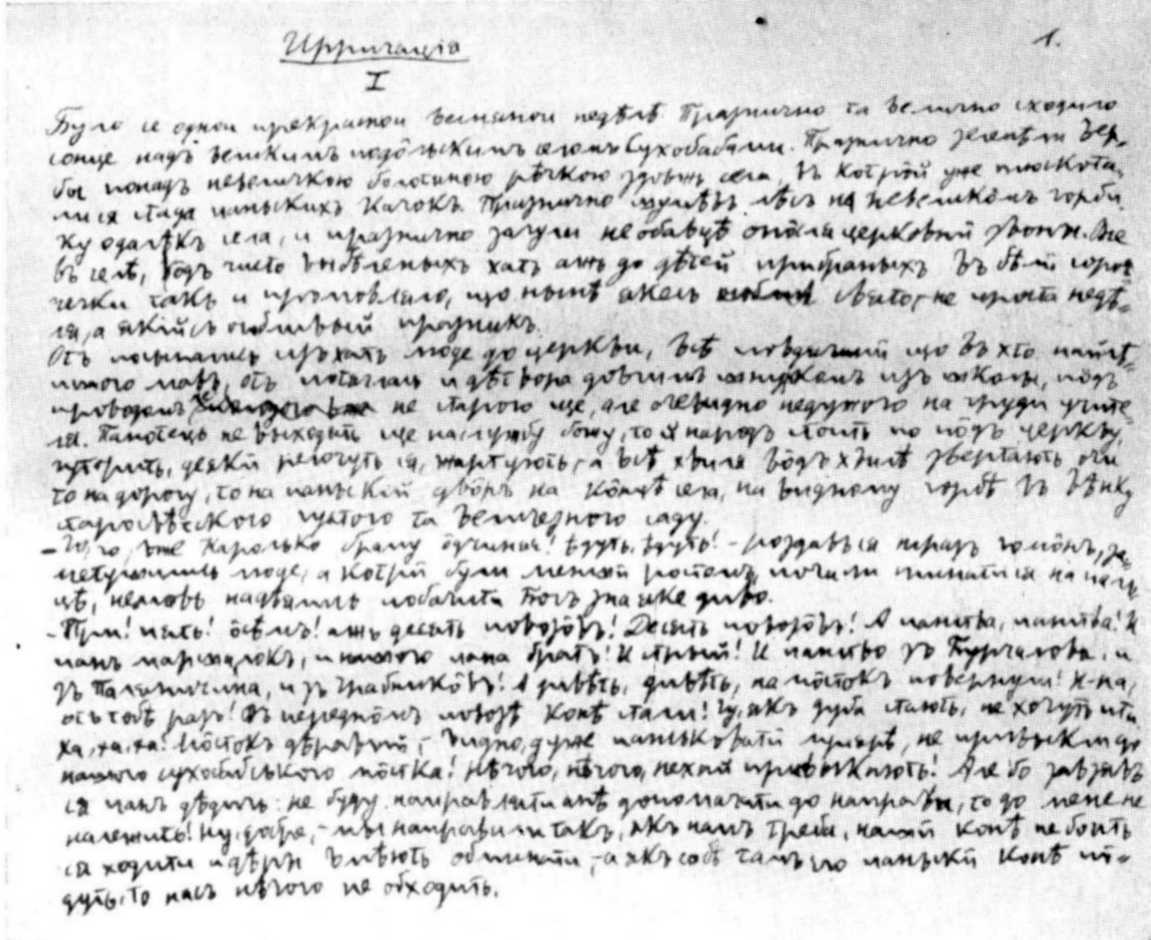 Ирригація
1.
I
Було се одной прекрасной весняной недѣлѣ. Празнично та велично сходило
сонце надъ великимъ подôльскимъ селомъ Сухобабами. Празнично зеленѣли вер-
бы понадъ невеличкою болотяною рѣчкою здовжъ села, въ котрôй уже плюскота-
лися стада панскихъ качокъ. Празнично шумѣвъ лѣсъ на невеликôмъ горби-
ку одалѣкъ села, и празнично загули необавцѣ опôсля церковнй звоны. Все
въ селѣ, вôдъ чисто выбѣленыхъ хатъ ажъ до дѣтей прибраныхъ въ бѣлй соро-
чечки такъ и промовляло, що нынѣ якесь свято, не проста недѣ-
ля, а якійсь особливый празникъ.
Отъ посыпались изъ хатъ люде до церкви, всѣ що въ хто найлѣ-
пшого мавъ, отъ потяглась и дѣтвора довгимъ шнуркомъ изъ школы, пôдъ
проводомъ не старого ще, але очевидно недужого на груди учите-
ля. Панотець не выходивъ ще на службу божу, то й народъ стоить по пôдъ церкву,
гуторить, деякй регочуть ся, жартують, а всѣ хвиля вôдъ хвилѣ звертають очи
то на дорогу, то на панскій двôръ на кôнци села, на видному горбѣ въ вѣнку
старосвѣцкого густого та величезного саду.
– Го, го, уже Каролько браму ôдчинивъ! Ѣдуть, ѣдуть! – роздавъ ся наразъ гомôнъ, за-
метушились люде, а котрй були меншй ростомъ, почали спинатися на паль-
цѣ, немовъ надѣялись побачити Богъ зна яке диво.
– Три! пять! ôсѣмъ! ажъ десять повозôвъ! Десять повозôвъ! А панства, панства! И
панъ маршалокъ, и нашого пана братъ! И ! И панство зъ Бурчалова, и
зъ , и зъ Грабникôвъ! А дивѣть, дивѣть, на мôстокъ повернули! Н-на,
отъ тобѣ разъ! Въ переднôмъ повозѣ конѣ стали! Гу, якъ дуба стають, не хочуть ити
ха, ха, ха! Мôстокъ дѣравый, – видно, дуже панськоватй , не привыкли до
нашого сухобабського мôстка! Нѣчого, нѣчого, нехай привыкають! Але бо завзявъ
ся панъ дѣдичъ: не буду направляти анѣ допомагати до направы, то до мене не
належить! Ну, добре, – мы направили такъ, якъ намъ треба, нашй конѣ не боять
ся ходити и дѣры вмѣють обминати, – а якъ собѣ тамъ панськй конѣ пô-
дуть, то насъ нѣчого не обходить.